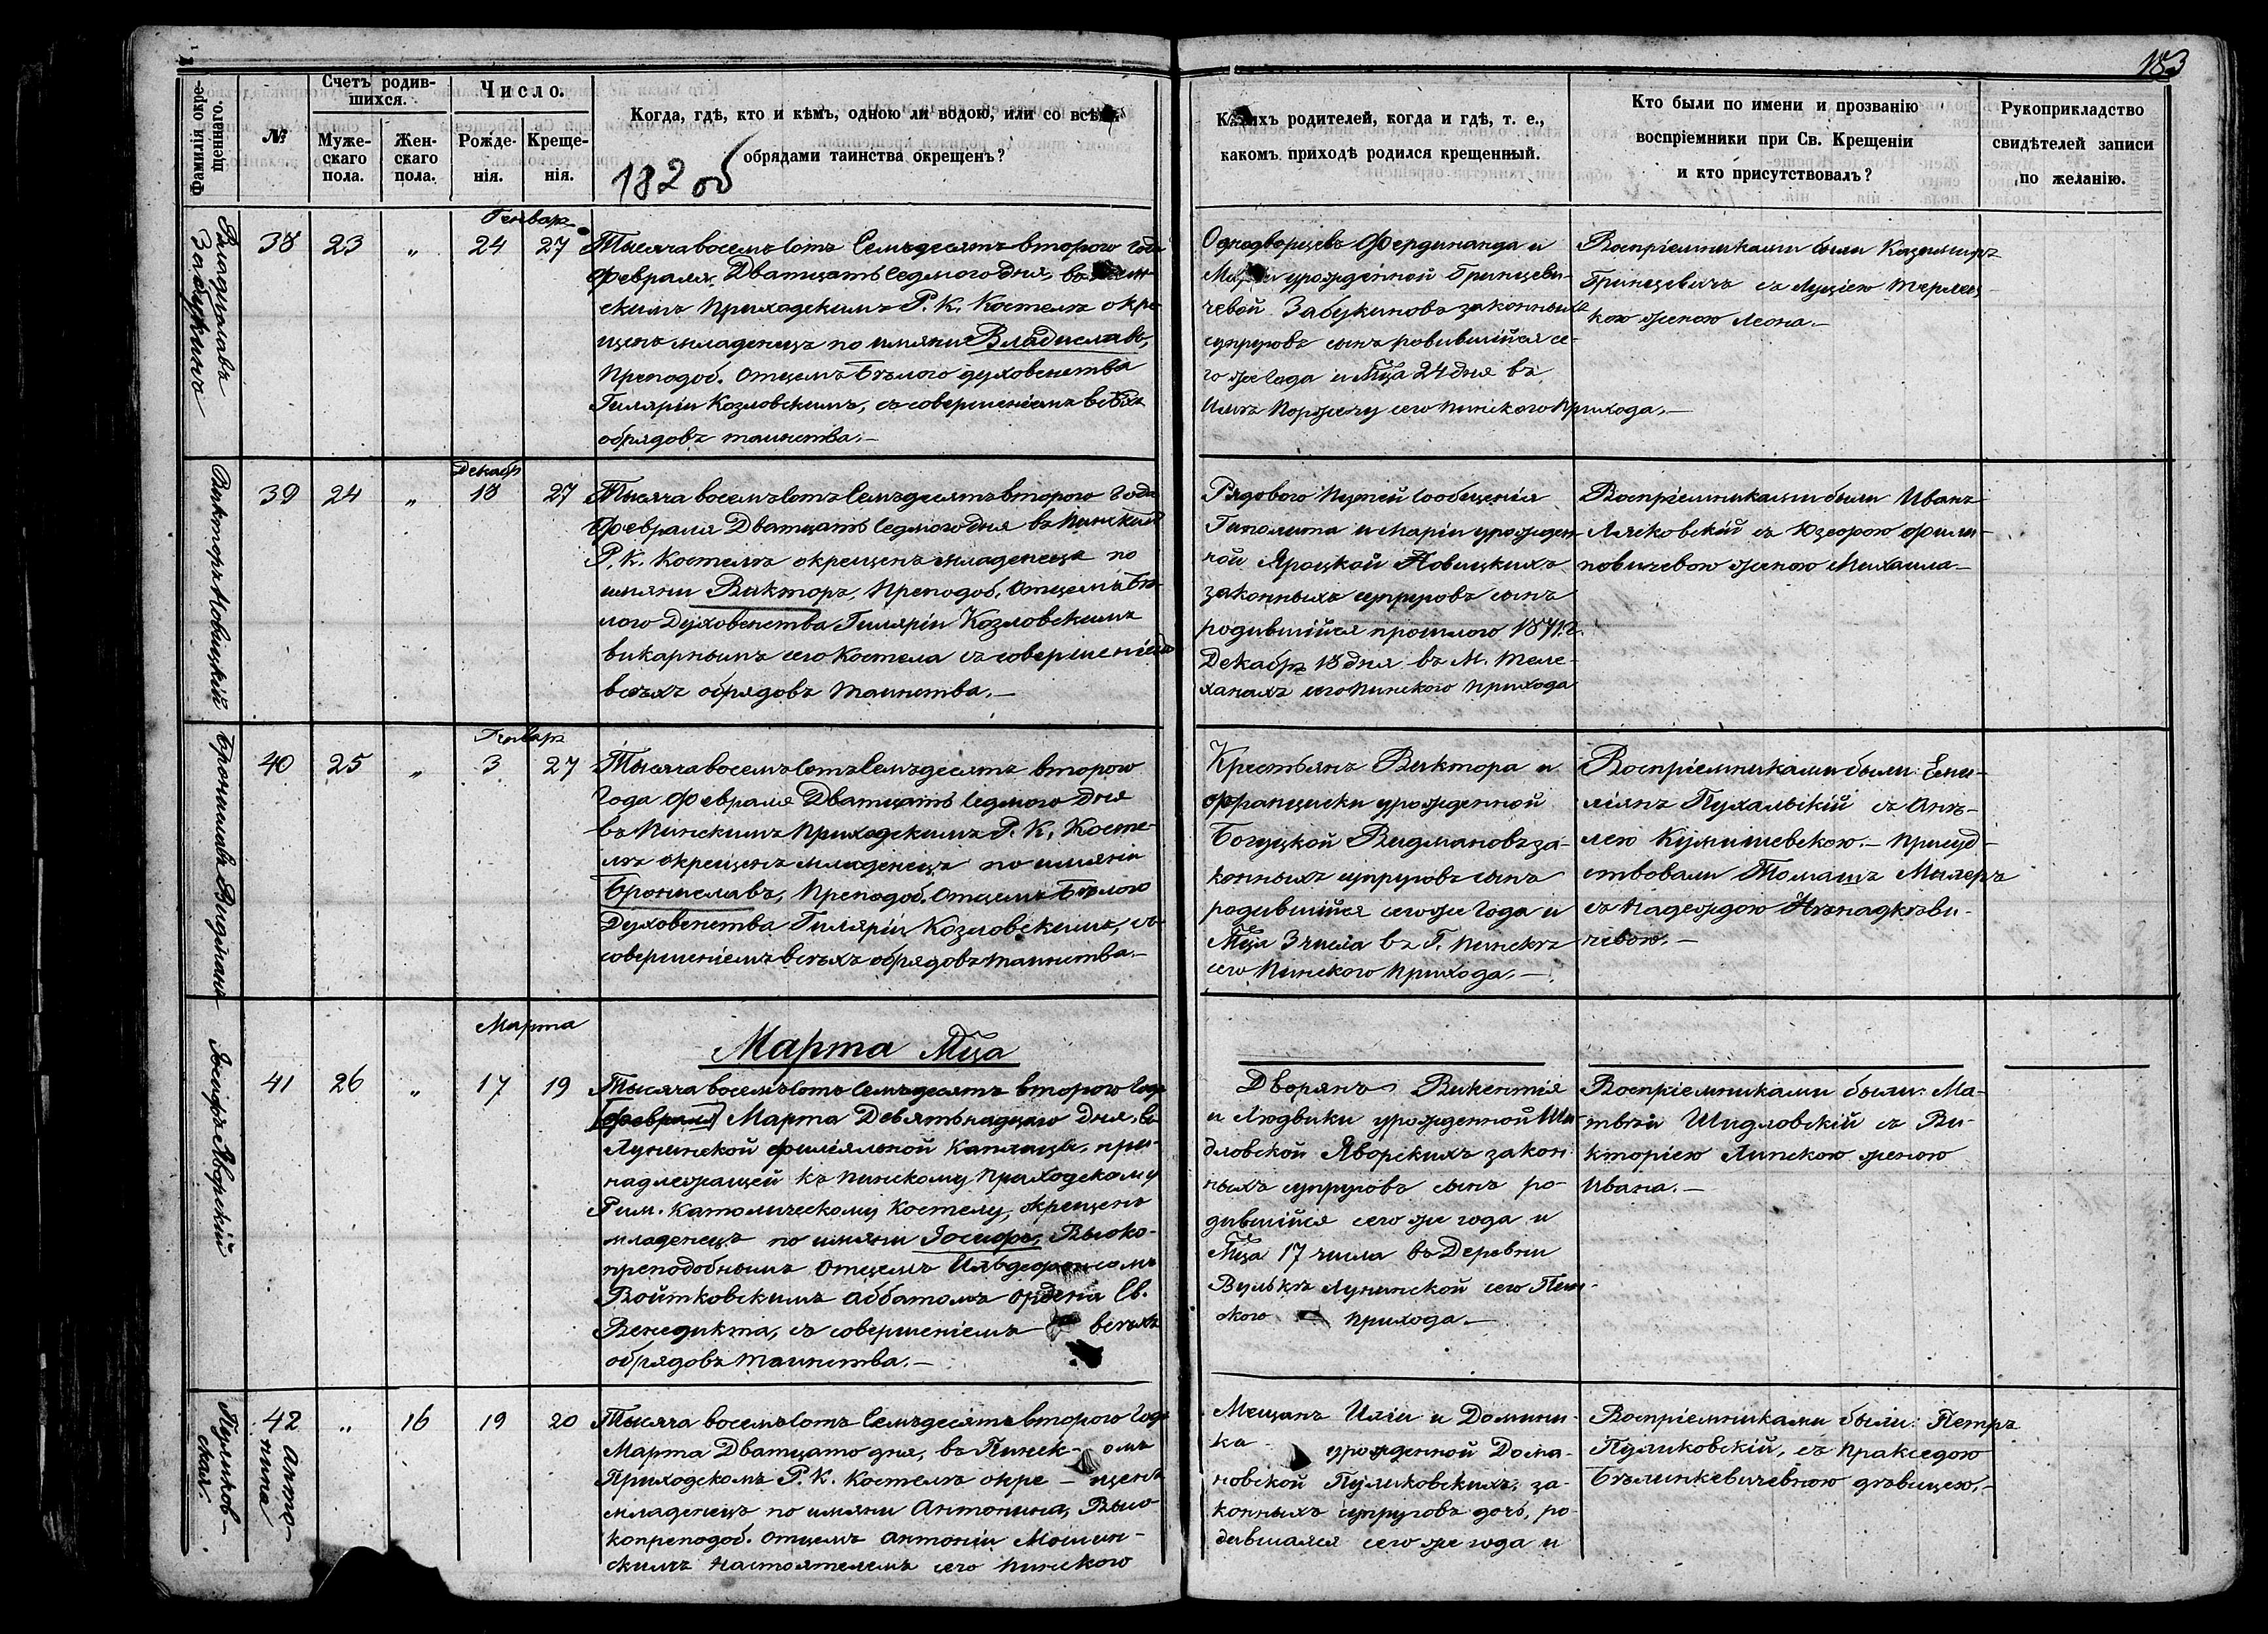 183
Фамилія окре-
щеннаго.
№
Счетъ родив-
шихся.
Муже-
скаго
пола.
Жен-
скаго
пола.
Число.
Рожде-
нія.
Креще-
нія.
Когда, гдѣ, кто и кѣмъ, одною ли водою, или со всѣми
обрядами таинства окрещенъ?
182 об
Какихъ родителей, когда и гдѣ, т. е.,
какомъ приходѣ родился крещенный.
Кто были по имени и прозванію
воспріемники при Св. Крещеніи
и кто присутствовалъ?
Рукоприкладство
свидѣтелей записи
по желанію.
Владиславъ
Забукинъ
38 23 „ 24 27
Тысяча восемъ сотъ Семъдесятъ второго Года
Февраля Дватцатъ седмого дня, въ
скимъ Приходскимъ Р. К. Костелѣ окре-
щенъ младенецъ по имяни Владиславъ,
Преподоб. Отцемъ Бѣлого духовенства
Гилярiи Козловскимъ, съ совершеніемъ всѣхъ
обрядовъ таинства.—
Однодворцевъ Фердинанда и
урожденной Гринцеви-
чевой Забукиновъ законныхъ
супруговъ сынъ родившійся се-
го же Года и Мца 24 дня въ
сего Пинского Прихода.—
Воспріемниками были Казимиръ
Гринцевичъ съ Луціею
кою женою Леона.—
Викторъ Новицкій
Декабр
39 24 „ 18 27
Тысяча восемъ сотъ Семъдесятъ второго Года
Февраля Дватцатъ седмого дня въ Пинскимъ
Р. К. Костелѣ окрещенъ младенецъ по
имяни Викторъ, Преподоб. Отцемъ Бѣ-
лого Духовенства Гилярiи Козловскимъ
викарнымъ сего Костела съ совершеніемъ
всѣхъ обрядовъ таинства.—
Рядового Путей сообщенія
Гиполита и Маріи урожден-
ной Яроцкой Новицкихъ
законныхъ супруговъ сынъ
родившійся прошлого 1871 г.
Декабря 18 дня въ М. Теле-
ханахъ сего Пинского прихода
Воспріемниками были Иванъ
Лясковскій съ Юзефою Фили-
повичевою женою Михаила—
Брониславъ Видманъ
40 25 „ 3 27
Тысяча восемъ сотъ Семъдесятъ второго
Года Февраля Дватцатъ седмого дня
въ Пинскимъ Приходскимъ Р. К. Косте-
лѣ окрещенъ младенецъ по имяни
Брониславъ, Преподоб. Отцемъ Бѣлого
Духовенства Гилярiи Козловскимъ, съ
совершеніемъ всѣхъ обрядовъ таинства.—
Крестьянъ Виктора и
Францишки урожденной
Богуцкой Видмановъ за-
конныхъ супруговъ сынъ
родившійся сего же Года и
Мца 3 числа въ Г. Пинскѣ
сего Пинского Прихода.—
Воспріемниками были: Еми-
ліянъ Пухальскій съ Анѣ-
лею Кунишевскою.— Присуд-
ствовали Томашъ Милеръ
съ Надеждою
чевою.—
Марта
Марта Мца
Іосифъ Яворскій
41 26 „ 17 19
Тысяча восемъ сотъ Семъдесятъ второго Года
[Февраля] Марта Девятьнадцаго Дня, въ
Лунинской филіяльной Каплицы, при-
надлежащей къ Пинскому Приходскому
Рим. Католическому Костелу, окрещенъ
младенецъ по имяни Іосифъ, Высоко-
преподобнымъ Отцемъ Ильдефонсомъ
Войтковскимъ Аббатомъ ордена Св.
Венедикта, съ совершеніемъ всѣхъ
обрядовъ таинства.—
Дворянъ Викентія
и Людвики урожденной Ши-
дловской Яворскихъ закон-
ныхъ супруговъ сынъ ро-
дившійся сего же года и
Мца 17 числа въ Деревни
Вулькѣ Лунинской сего Пин-
ского прихода.—
Воспріемниками были: Ма-
твѣй Шидловскій съ Ви-
кторіею Липскою женою
Ивана.—
Пулпков-
ская
Анто-
нина
42 „ 16 19 20
Тысяча восемъ сотъ Семъдесятъ второго Года
Марта Дватцато дня, въ Пинск- омъ
Приходскомъ Р. К. Костелѣ окре — щенъ
младенецъ по имяни Антонина, Высо-
копреподоб. Отцемъ Антоніи Мошин-
скимъ Настоятелемъ сего Пинского
Мещанъ Иліи и Домини-
ка- урожденной Дома-
новской Пуликовскихъ, за-
конныхъ супруговъ дочь, ро-
дившаяся сего же года и
Воспріемниками были: Петръ
Пуликовскій, съ Пракседою
Бѣлинкевичевною дѣвицею.—